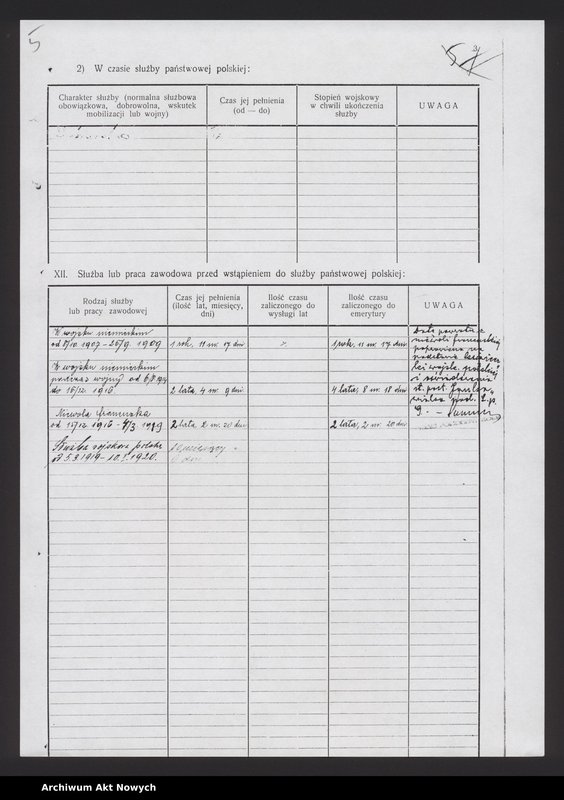 5
2) W czasie służby państwowej polskiej:
Charakter służby (normalna służbowa
obowiązkowa, dobrowolna, wskutek
mobilizacji lub wojny)
Czas jej pełnienia
(od — do)
Stopień wojskowy
w chwili ukończenia
służby
UWAGA
XII. Służba lub praca zawodowa przed wstąpieniem do służby państwowej polskiej:
Rodzaj służby
lub pracy zawodowej
Czas jej pełnienia
(ilość lat, miesięcy,
dni)
Ilość czasu
zaliczonego do
wysługi lat
Ilość czasu
zaliczonego do
emerytury
UWAGA
W wojsku niemieckim
od 8/10 1907 - 25/9. 1909
1 rok. 11 m. 17 dni
1 rok. 11 m. 17 dni
W wojsku niemieckim
podczas wojny od
do 15/12. 1916.
2 lata, 4 m. 9 dni.
4 lata, 8 m. 18 dni
Niewola francuska
od 15/12 1916 - 4/3. 1919
2 lata, 2 m. 20 dni
2 lata, 2 m. 20 dni
Służba wojskowa polska
5.3.1919 - 10.1.1920.
Data powrotu z
niewoli francuskiej
poprawiona na
podstawie
wojsk.
i
st. post.